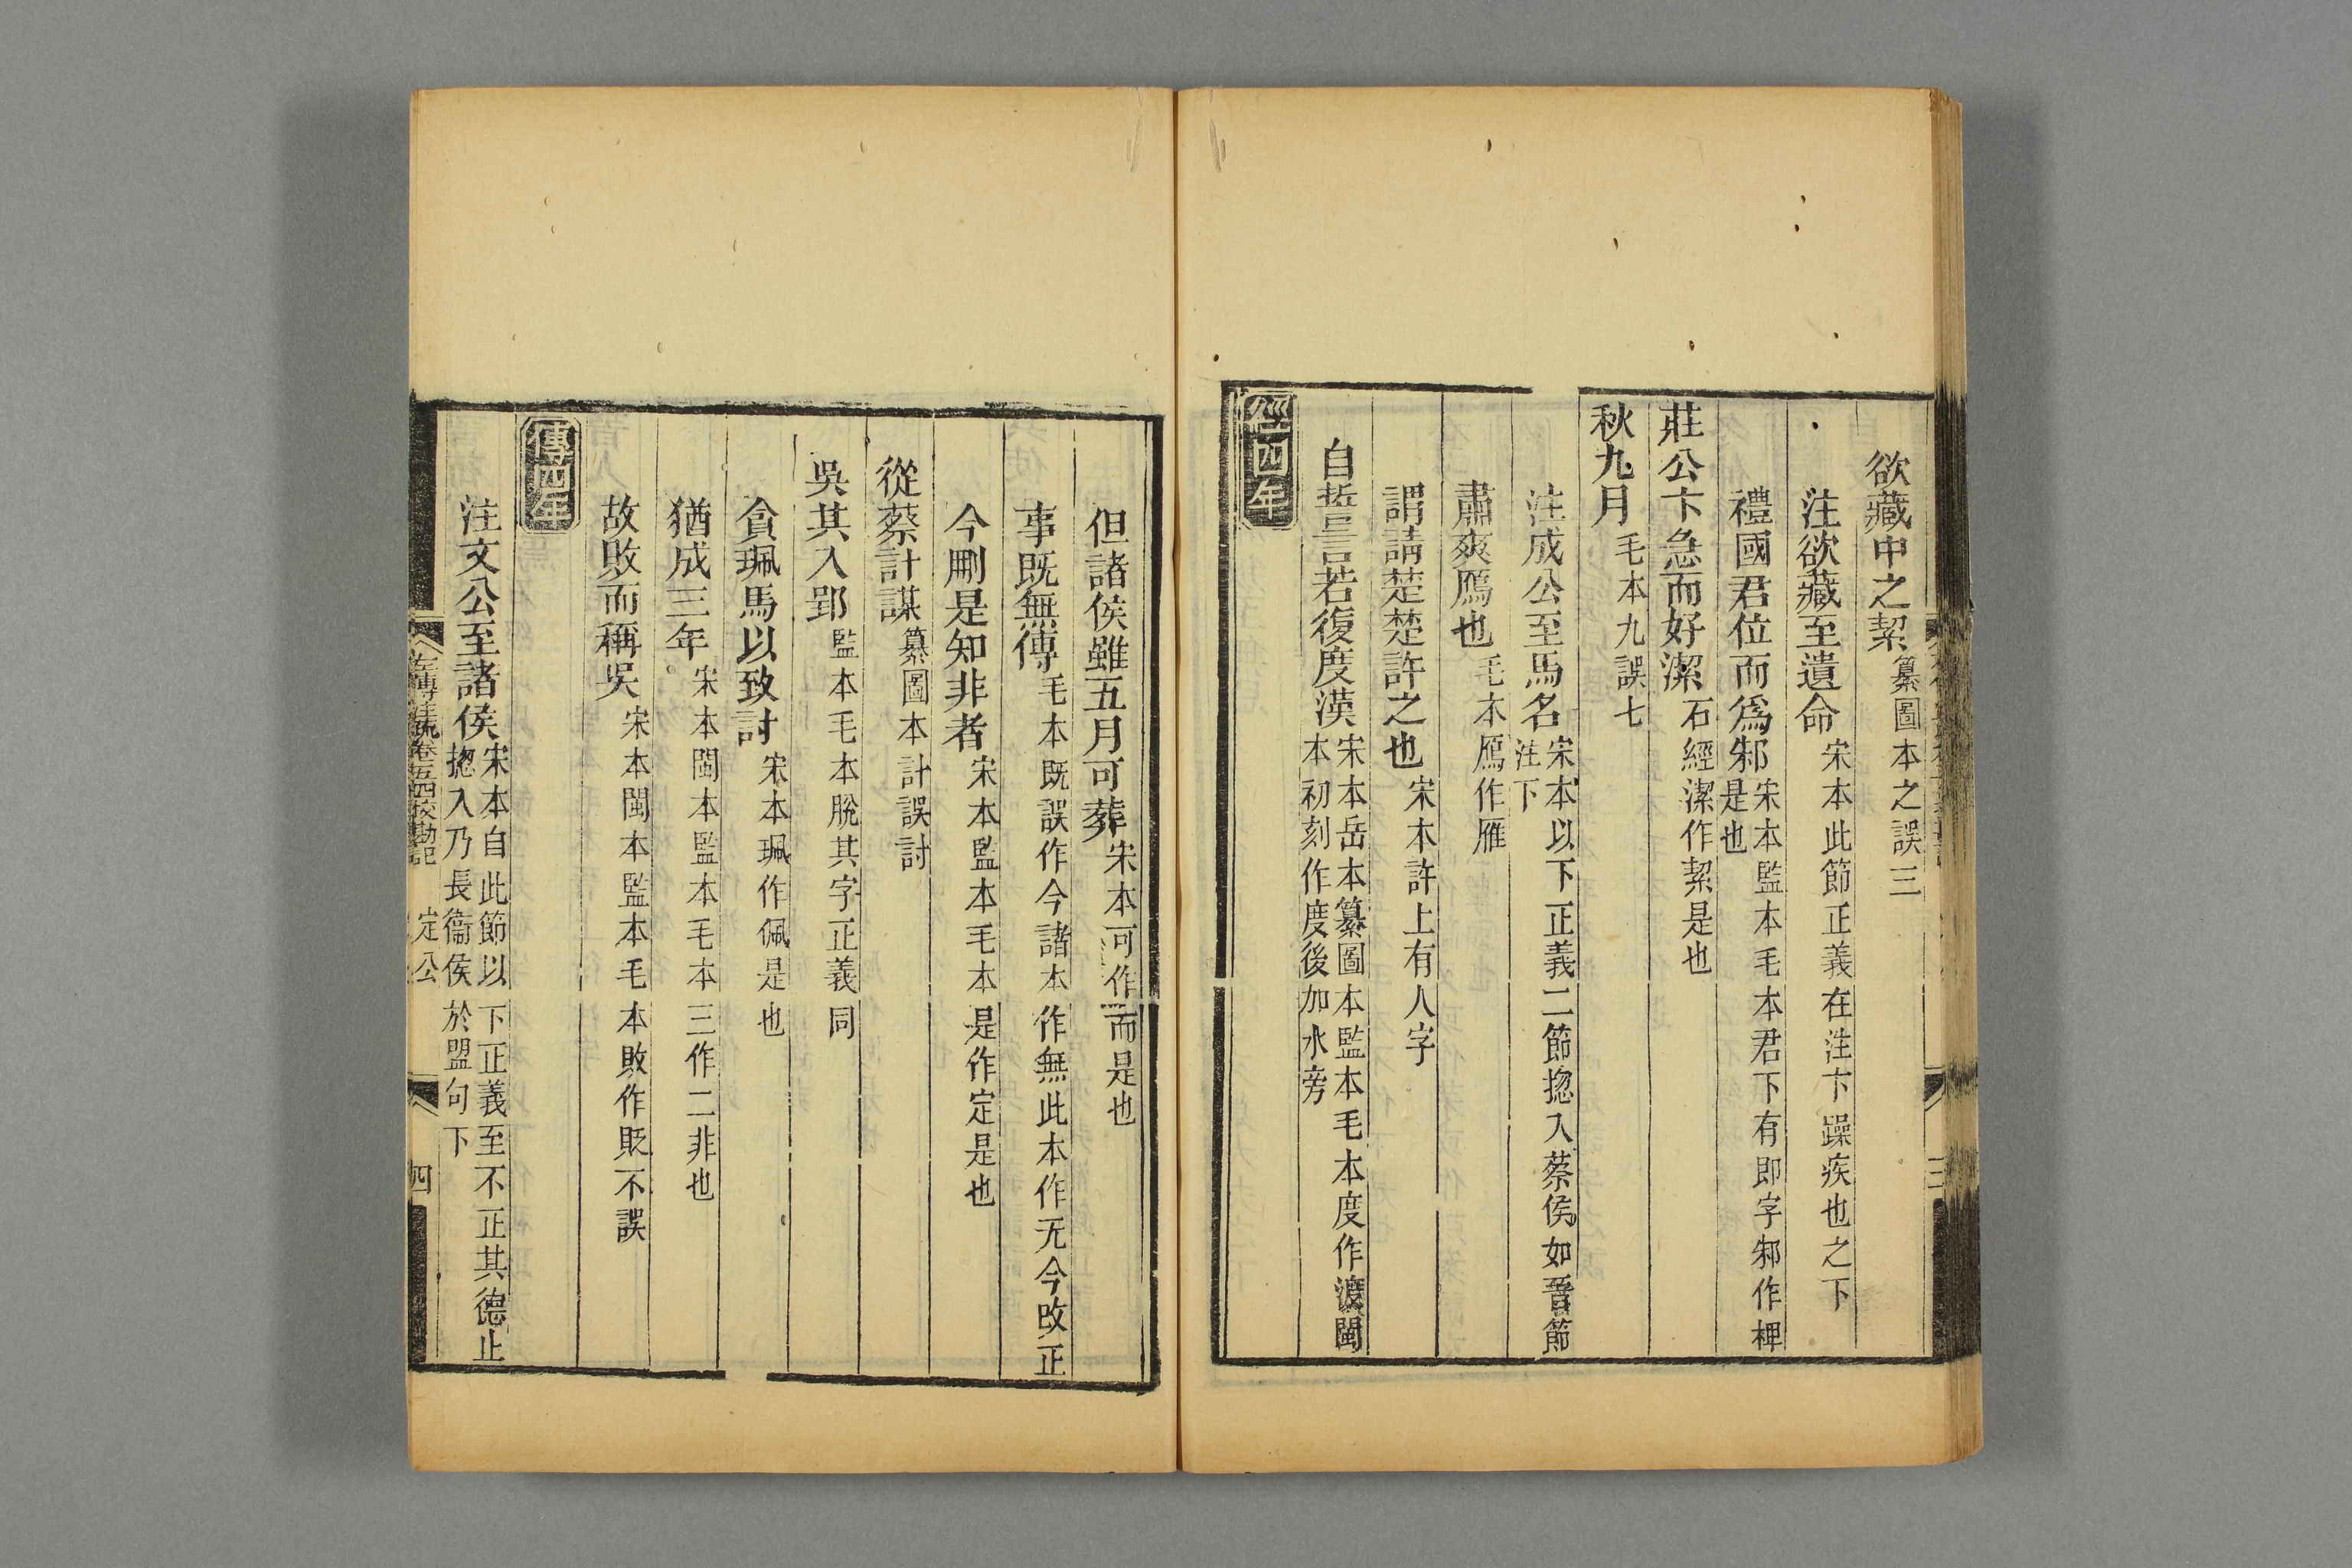 欲藏中之絜纂圖本之誤三
注欲藏至遺命宋本此節正義在注卞躁疾也之下
禮國君位而爲䣛宋本監本毛本君下有即字䣛作椑是也
莊公卞急而好潔石經潔作絜是也
秋九月毛本九誤七
注成公至馬名宋本以下正義二節揔入蔡侯如晉節注下
肅爽鴈也毛本鴈作雁
謂請楚楚許之也宋本許上有人字
自誓言若復度漢宋本岳本纂圖本監本毛本度作渡閩本初刻作度後加水旁
經四年
但諸侯雖五月可葬宋本可作而是也
事既無傳毛本既誤作今諸本作無此本作无今改正
今刪是知非者宋本監本毛本是作定是也
從蔡計謀纂圖本計誤討
吳其入郢監本毛本脫其字正義同
貪珮馬以致討宋本珮作佩是也
猶成三年宋本閩本監本毛本三作二非也
故敗而稱吳宋本閩本監本毛本敗作貶不誤
傳四年
注文公至諸侯宋本自此節以下正義至不正其德止揔入乃長衞侯於盟句下
左傳注疏卷五四校勘記 定公 四